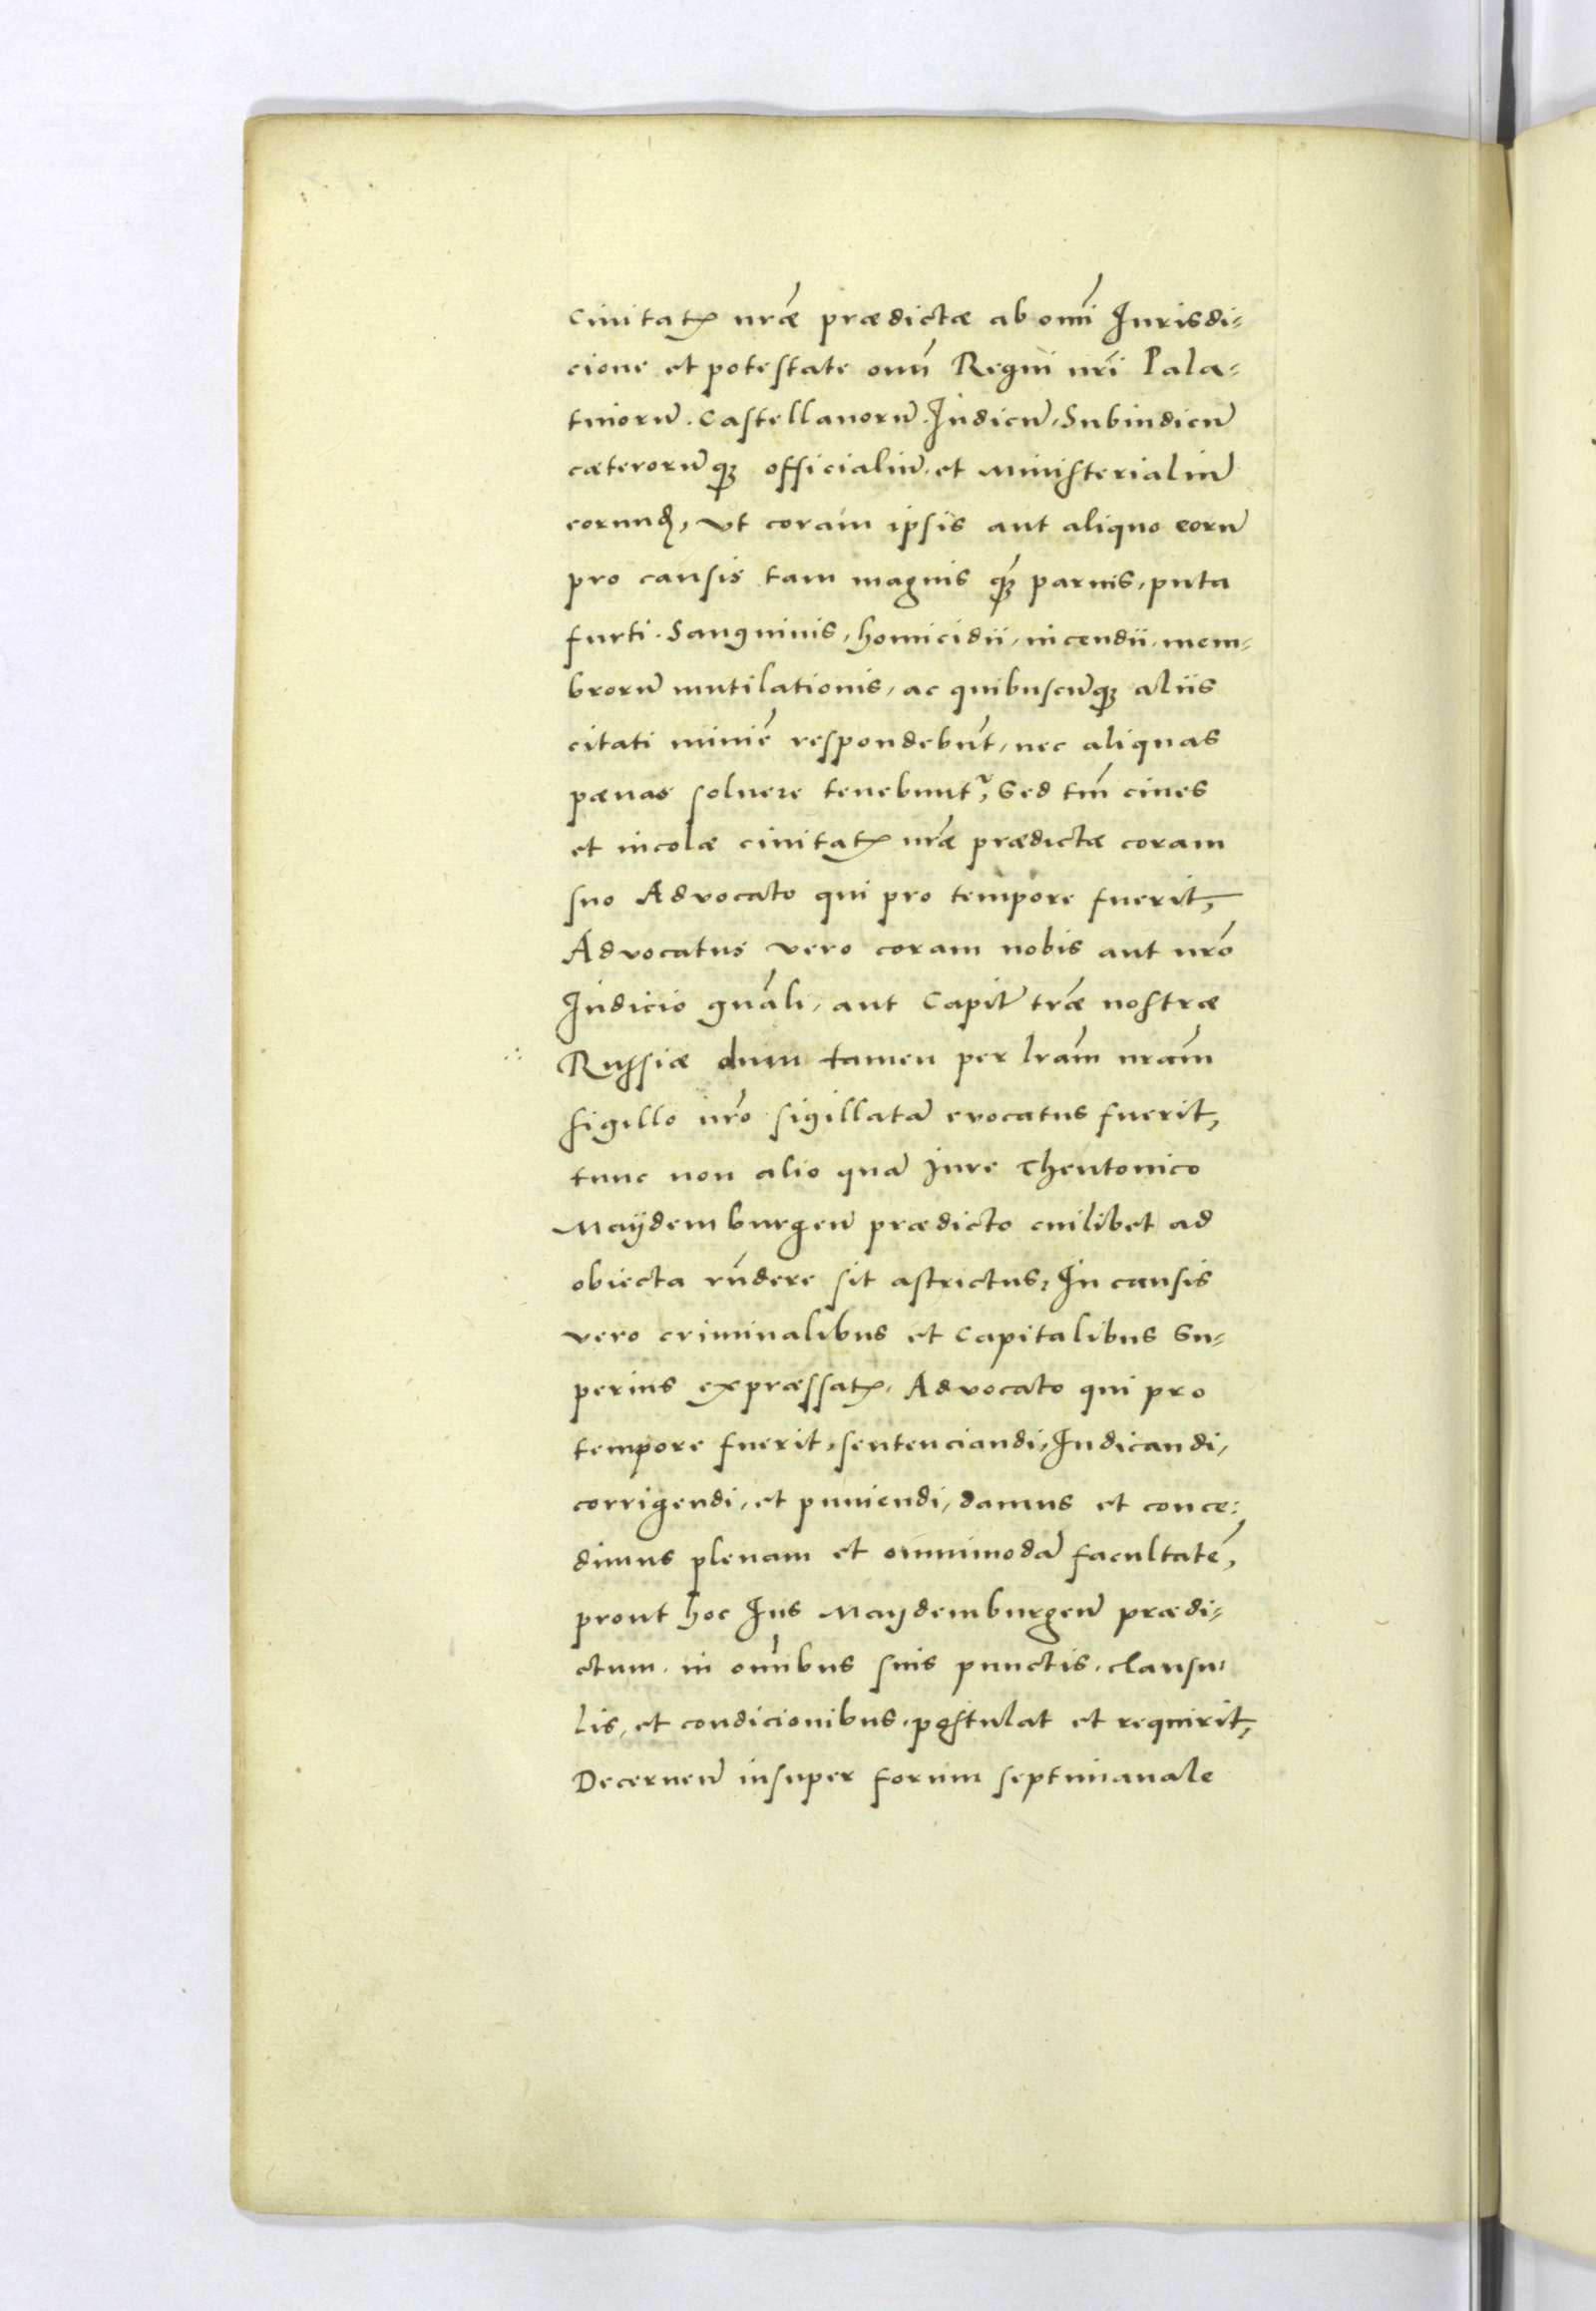 Ciuitatꝭ nrãe prædictæ ab omi̅ Iurisdi-
cione et potestate oniu̅ Regni nri̅ Pala-
tinorũ. Castellanorũ. Iudicũ, Subiudicũ
cæterorũqꝫ officialiũ. et Ministerialiũ
eorundꝭ, vt coram ipsis aut aliquo eorũ
pro causis tam magnis qꝫ̃ paruis, puta
furti. Sanguinis, homicidii, incendii, mem-
brorũ mutilationis, ac quibuscũqꝫ aliis
citati minie̅ respondebũt, nec aliquas
pœnas soluere tenebuntʳ, Sed tm̅ ciues
et incolæ ciuitatꝭ nrãe prædictæ coram
suo Advocato qui pro tempore fuerit,
Advocatus vero coram nobis aut nrõ
Iudicio gnãli, aut Capit̃ trãe nostræ
Russiæ dum tamen per lrãm nrãm
sigillo nrõ sigillatã evocatus fuerit,
tunc non alio quã Iure Theutonico
Maÿdemburgeñ prædicto cuilibet ad
obiecta rñdere sit astrictus, In causis
vero criminalibus et Capitalibus Su-
perius expræssatꝭ, Advocato qui pro
tempore fuerit, sentenciandi, Iudicandi,
corrigendi, et puniendi, damus et conce:
dimus plenam et omnimodã facultatẽ,
prout hoc Ius Maydemburgeñ prædi-
ctum. in omi̅bus suis punctis, clausu-
lis, et condicionibus, postulat et requirit,
Decerneñ insuper forum septimanale